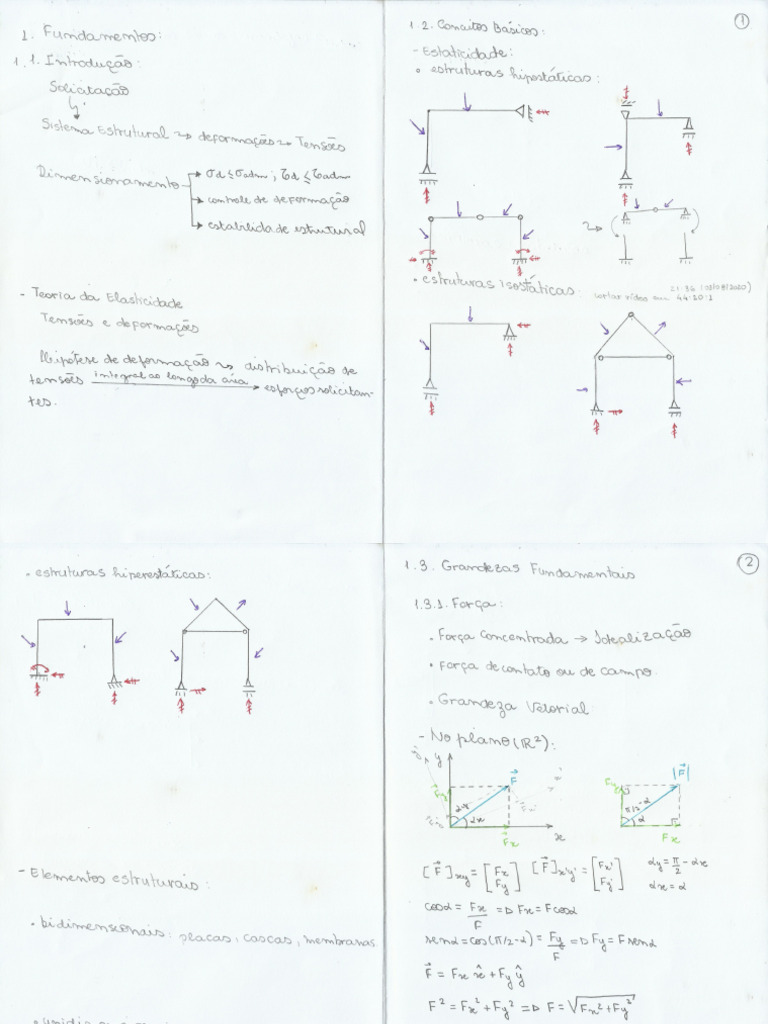 1. Fundamentos:
1.1. Introdução:
Solicitação
Sistema Estrutural → deformações → Tensões
Dimensionamento → σd ≤ σadm ; τd ≤ τadm
→ controle de deformação
→ estabilidade estrutural
- Teoria da Elasticidade
Tensões e deformações
Hipótese de deformação → distribuição de
tensões integral ao longo da área → esforços solicitan-
tes.
1
1.2. Conceitos Básicos:
- Estaticidade:
• estruturas hipostáticas:
• estruturas isostáticas:
• estruturas hiperestáticas:
- Elementos estruturais:
• bidimensionais: placas, cascas, membranas
2
1.3. Grandezas Fundamentais
1.3.1. Força:
• Força concentrada → Idealização
• Força de contato ou de campo
• Grandeza Vetorial
- No plano (R²):
y F⃗ Fy αy αx Fx x
|F⃗| Fy π/2-α α Fx
[F⃗]xy = [Fx Fy] [F⃗]x'y' = [Fx' Fy'] αy = π/2 - αx
αx = α
cosα = Fx/F => Fx = F cosα
senα = cos(π/2-α) = Fy/F => Fy = F senα
F⃗ = Fx x̂ + Fy ŷ
F² = Fx² + Fy² => F = √(Fx² + Fy²)